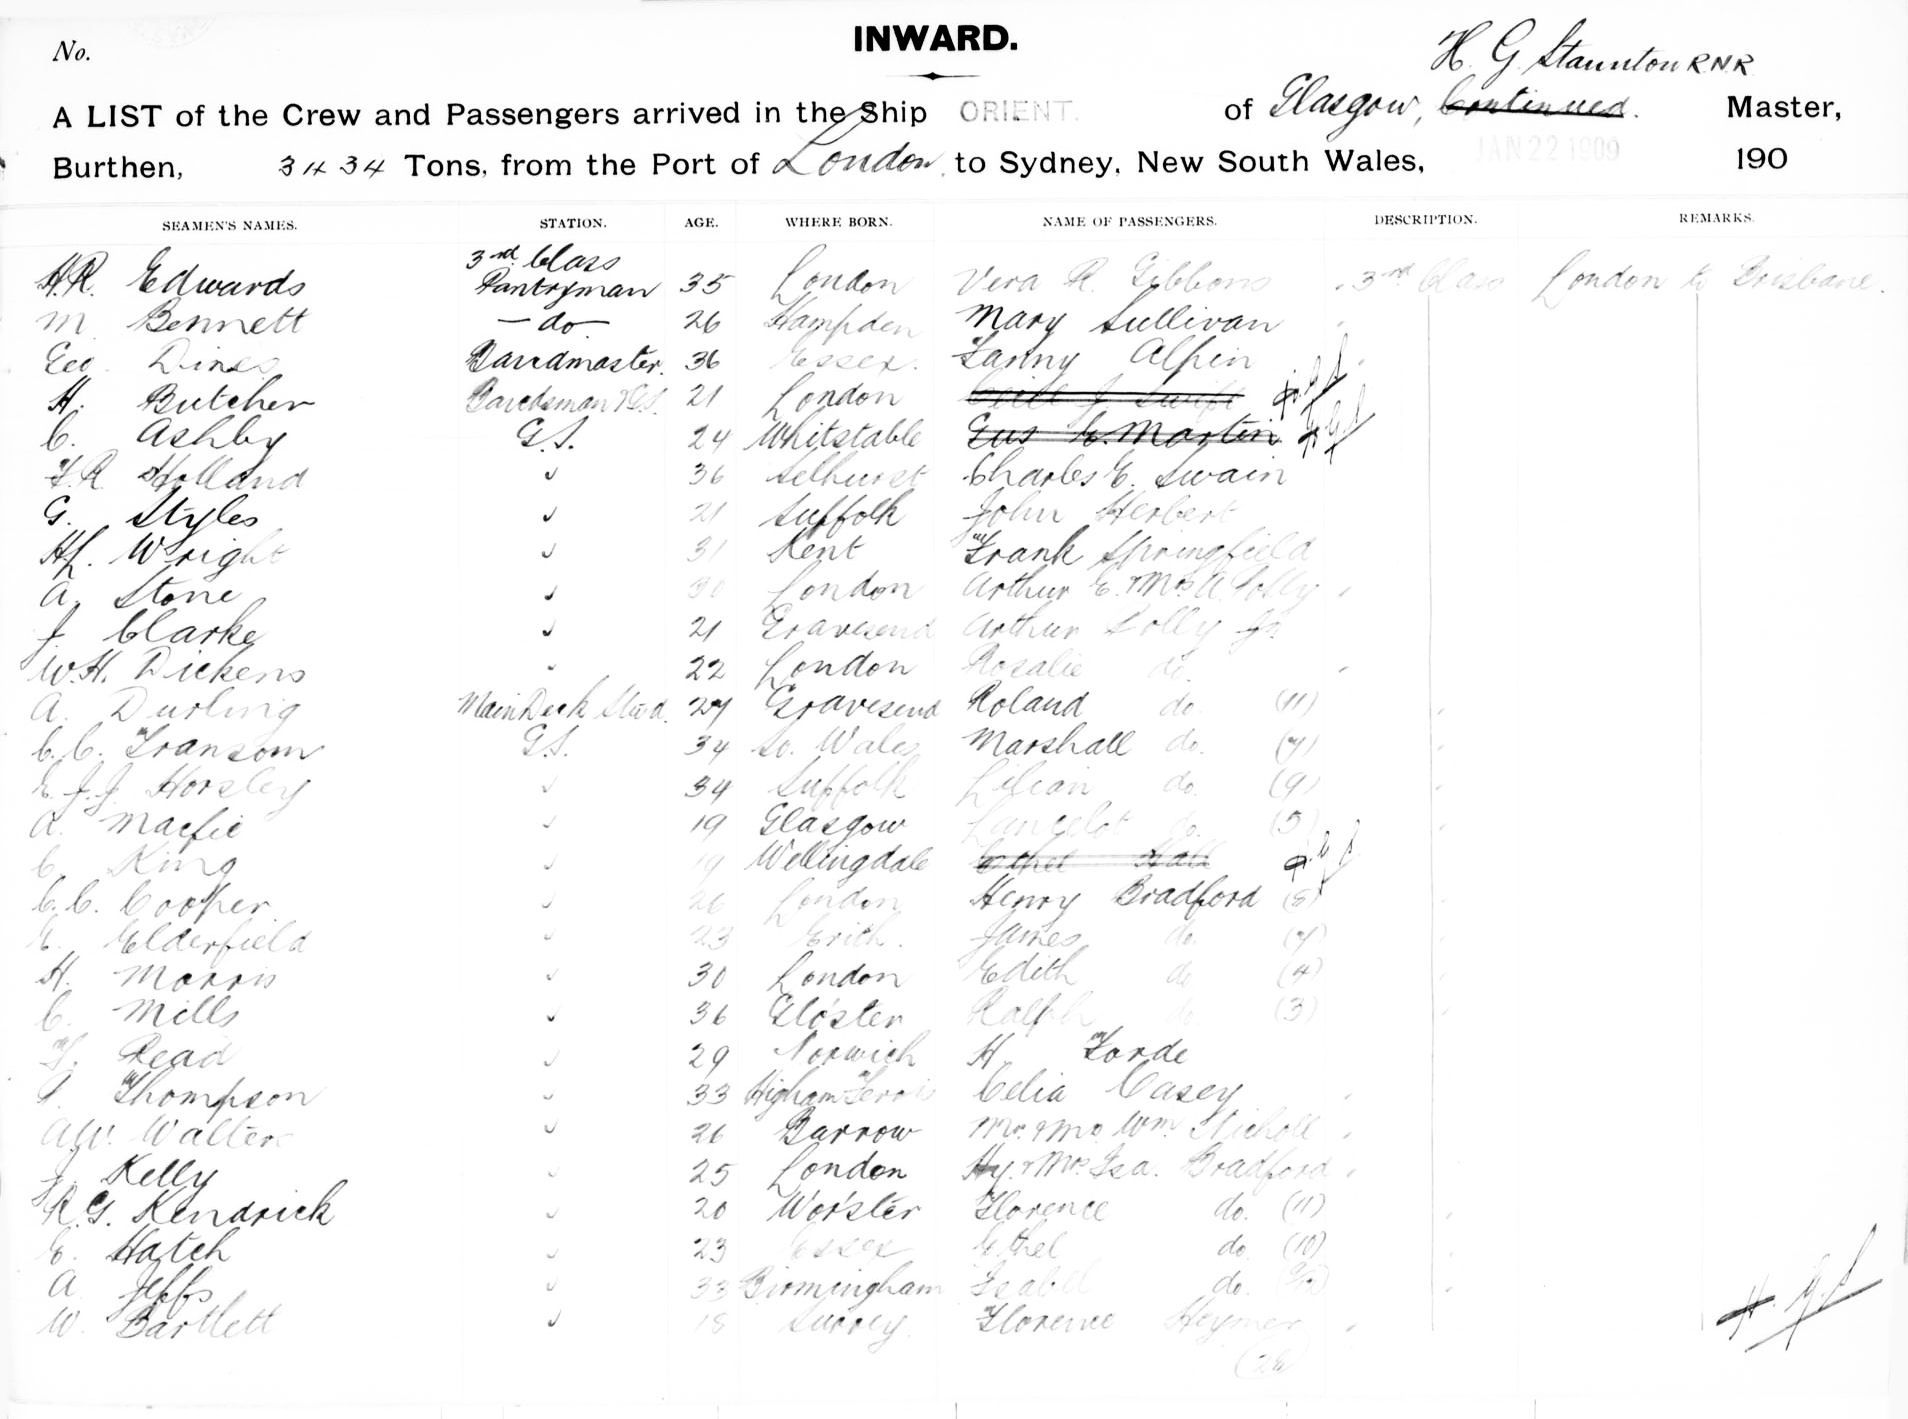 No.
INWARD.
H. G. Staunton RNR
A LIST of the Crew and Passengers arrived in the Ship ORIENT. of Glasgow, Continued. Master,
Burthen, 3434 Tons, from the Port of London to Sydney, New South Wales, JAN 22 1909 190
SEAMEN'S NAMES. STATION. AGE. WHERE BORN. NAME OF PASSENGERS. DESCRIPTION. REMARKS.
H.R. Edwards 3rd Class Pantryman 35 London Vera R. Gibbons 3rd Class London to Brisbane.
M. Bennett - do - 26 Hampden Mary Sullivan
Geo. Dines Bandmaster. 36 Essex. Fanny Alpin
H. Butcher Bandsman & G.S. 21 London Swift
C. Ashby G.S. 24 Whitstable Gus E. Martin
F.R. Holland " 36 Selhurst Charles E. Swain
G. Styles " 21 Suffolk John Herbert
Wright " 31 Kent Frank Springfield
A. Stone " 30 London Arthur E. & Mrs A. Solly
J. Clarke " 21 Gravesend Arthur Solly Jr
W.H. Dickens " 22 London Rosalie do.
A. Durling Main Deck Stwd. 27 Gravesend Roland do. (11)
C.C. Fransom G.S. 34 So. Wales Marshall do. (7)
E.J.J. Horsley " 34 Suffolk Lilian do. (9)
A. Macfie " 19 Glasgow Lancelot do. (5)
C. King " 19 Wellingdale Ethel Hall
C.C. Cooper " 26 London Henry Bradford (8)
E. Elderfield " 23 Erith. James do. (7)
H. Morris " 30 London Edith do (4)
C. Mills " 36 Glo'ster Ralph do. (3)
F. Read " 29 Norwich H. Forde
Thompson " 33 Higham Ferris Celia Casey
A.W. Walter " 26 Barrow Mr. & Mrs Wm. Nicholl
J. Kelly " 25 London Hy. & Mrs Isa. Bradford
R.G. Kendrick " 20 Wor'ster Florence do. (11)
E. Hatch " 23 Essex Ethel do. (10)
A. Jeffs " 33 Birmingham Isabel do.
W. Bartlett " 18 Surrey. Florence Heymer
H. G. S.